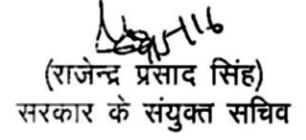 (राजेन्द्र प्रसाद सिंह)
सरकार के संयुक्त सचिव